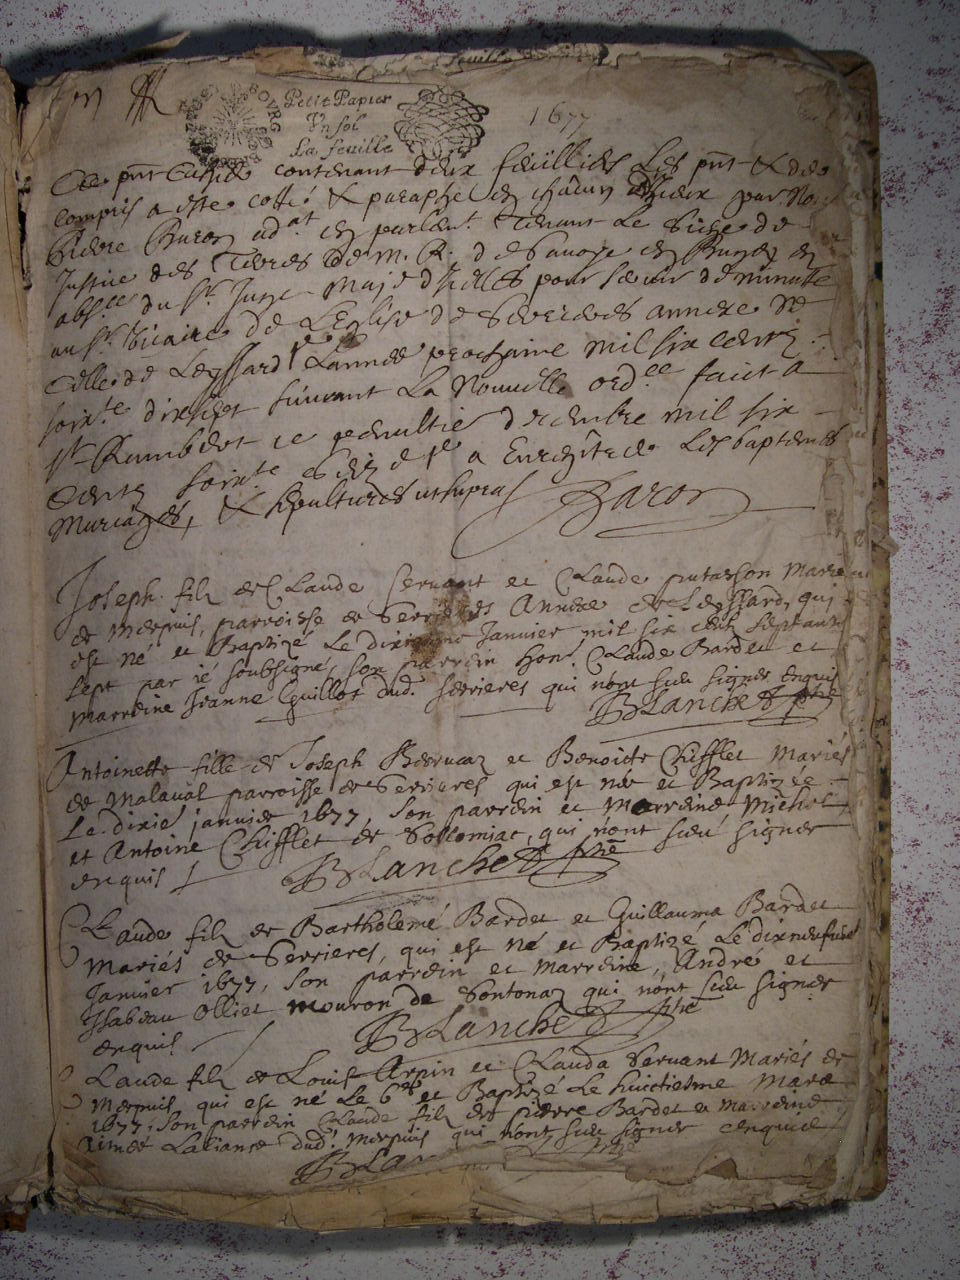 feuille
Petit Papier
Vn sol
La feuille
BOVRG
1677
Ce pnt Cahier contenant deux feüillies Les pnt & de
compris a este cotté & paraphé en chacun d'iceux par No
Pierre Baron adat en parlent Tenant Le Siege de
Justice des Terres de M. R. de Savoye en Bugey en
absce du Sr Juge Maje d'icelles pour servir de minutte
au Sr Vicaire de L'Eglise de Serrieres annexe de
Celle de Leyssard Lannée prochaine mil six centz
soixte dixsept suivant La Nouvelle ordce faict a
St Rambert ce penultie decembre mil six
Centz soixte a Enregitrer Les baptemes
Mariages, & sepultures ut supra
Baron
Joseph fils de Claude Servant et Claude putasson Mariés
de Merpuis, parroisse de Serrieres Annexe de Leyssard, qui
est né et Baptizé Le dixieme Janvier mil six cent septante
sept par ié soubsigné, son parrein hon. Claude Bardet et
Marreine Jeanne Guillot dud. Serrieres qui nont sceu signer Enquis
BLanchet ptre
Antoinette fille de Joseph et Benoicte Chifflet Mariés
de Malaval parroisse de Serrieres qui est née et Baptizée
Le dixie janvier 1677, Son parrein et Marreine Michel
et Antoine Chifflet de Solomiat, qui nont sceu signer
enquis
BLanchet ptre
CLaude fils de Bartholemé Bardet et Guillauma Bardet
Mariés de Serrieres, qui est né et Baptizé Le dixneufvie
Janvier 1677, Son parrein et Marreine, André et
Ysabeau Olliet Mouron de Sontonaz qui nont sceu signer
enquis
BLanchet ptre
CLaude fils de Louis Arpin et CLauda Servant Mariés de
Merpuis qui est né Le 6e et Baptizé Le huictieme Mars
1677, Son parrein CLaude fils de pierre Bardet et Marreine
Aimée Laliance dud. Merpuis qui nont sceu signer enquis
BLa ptre